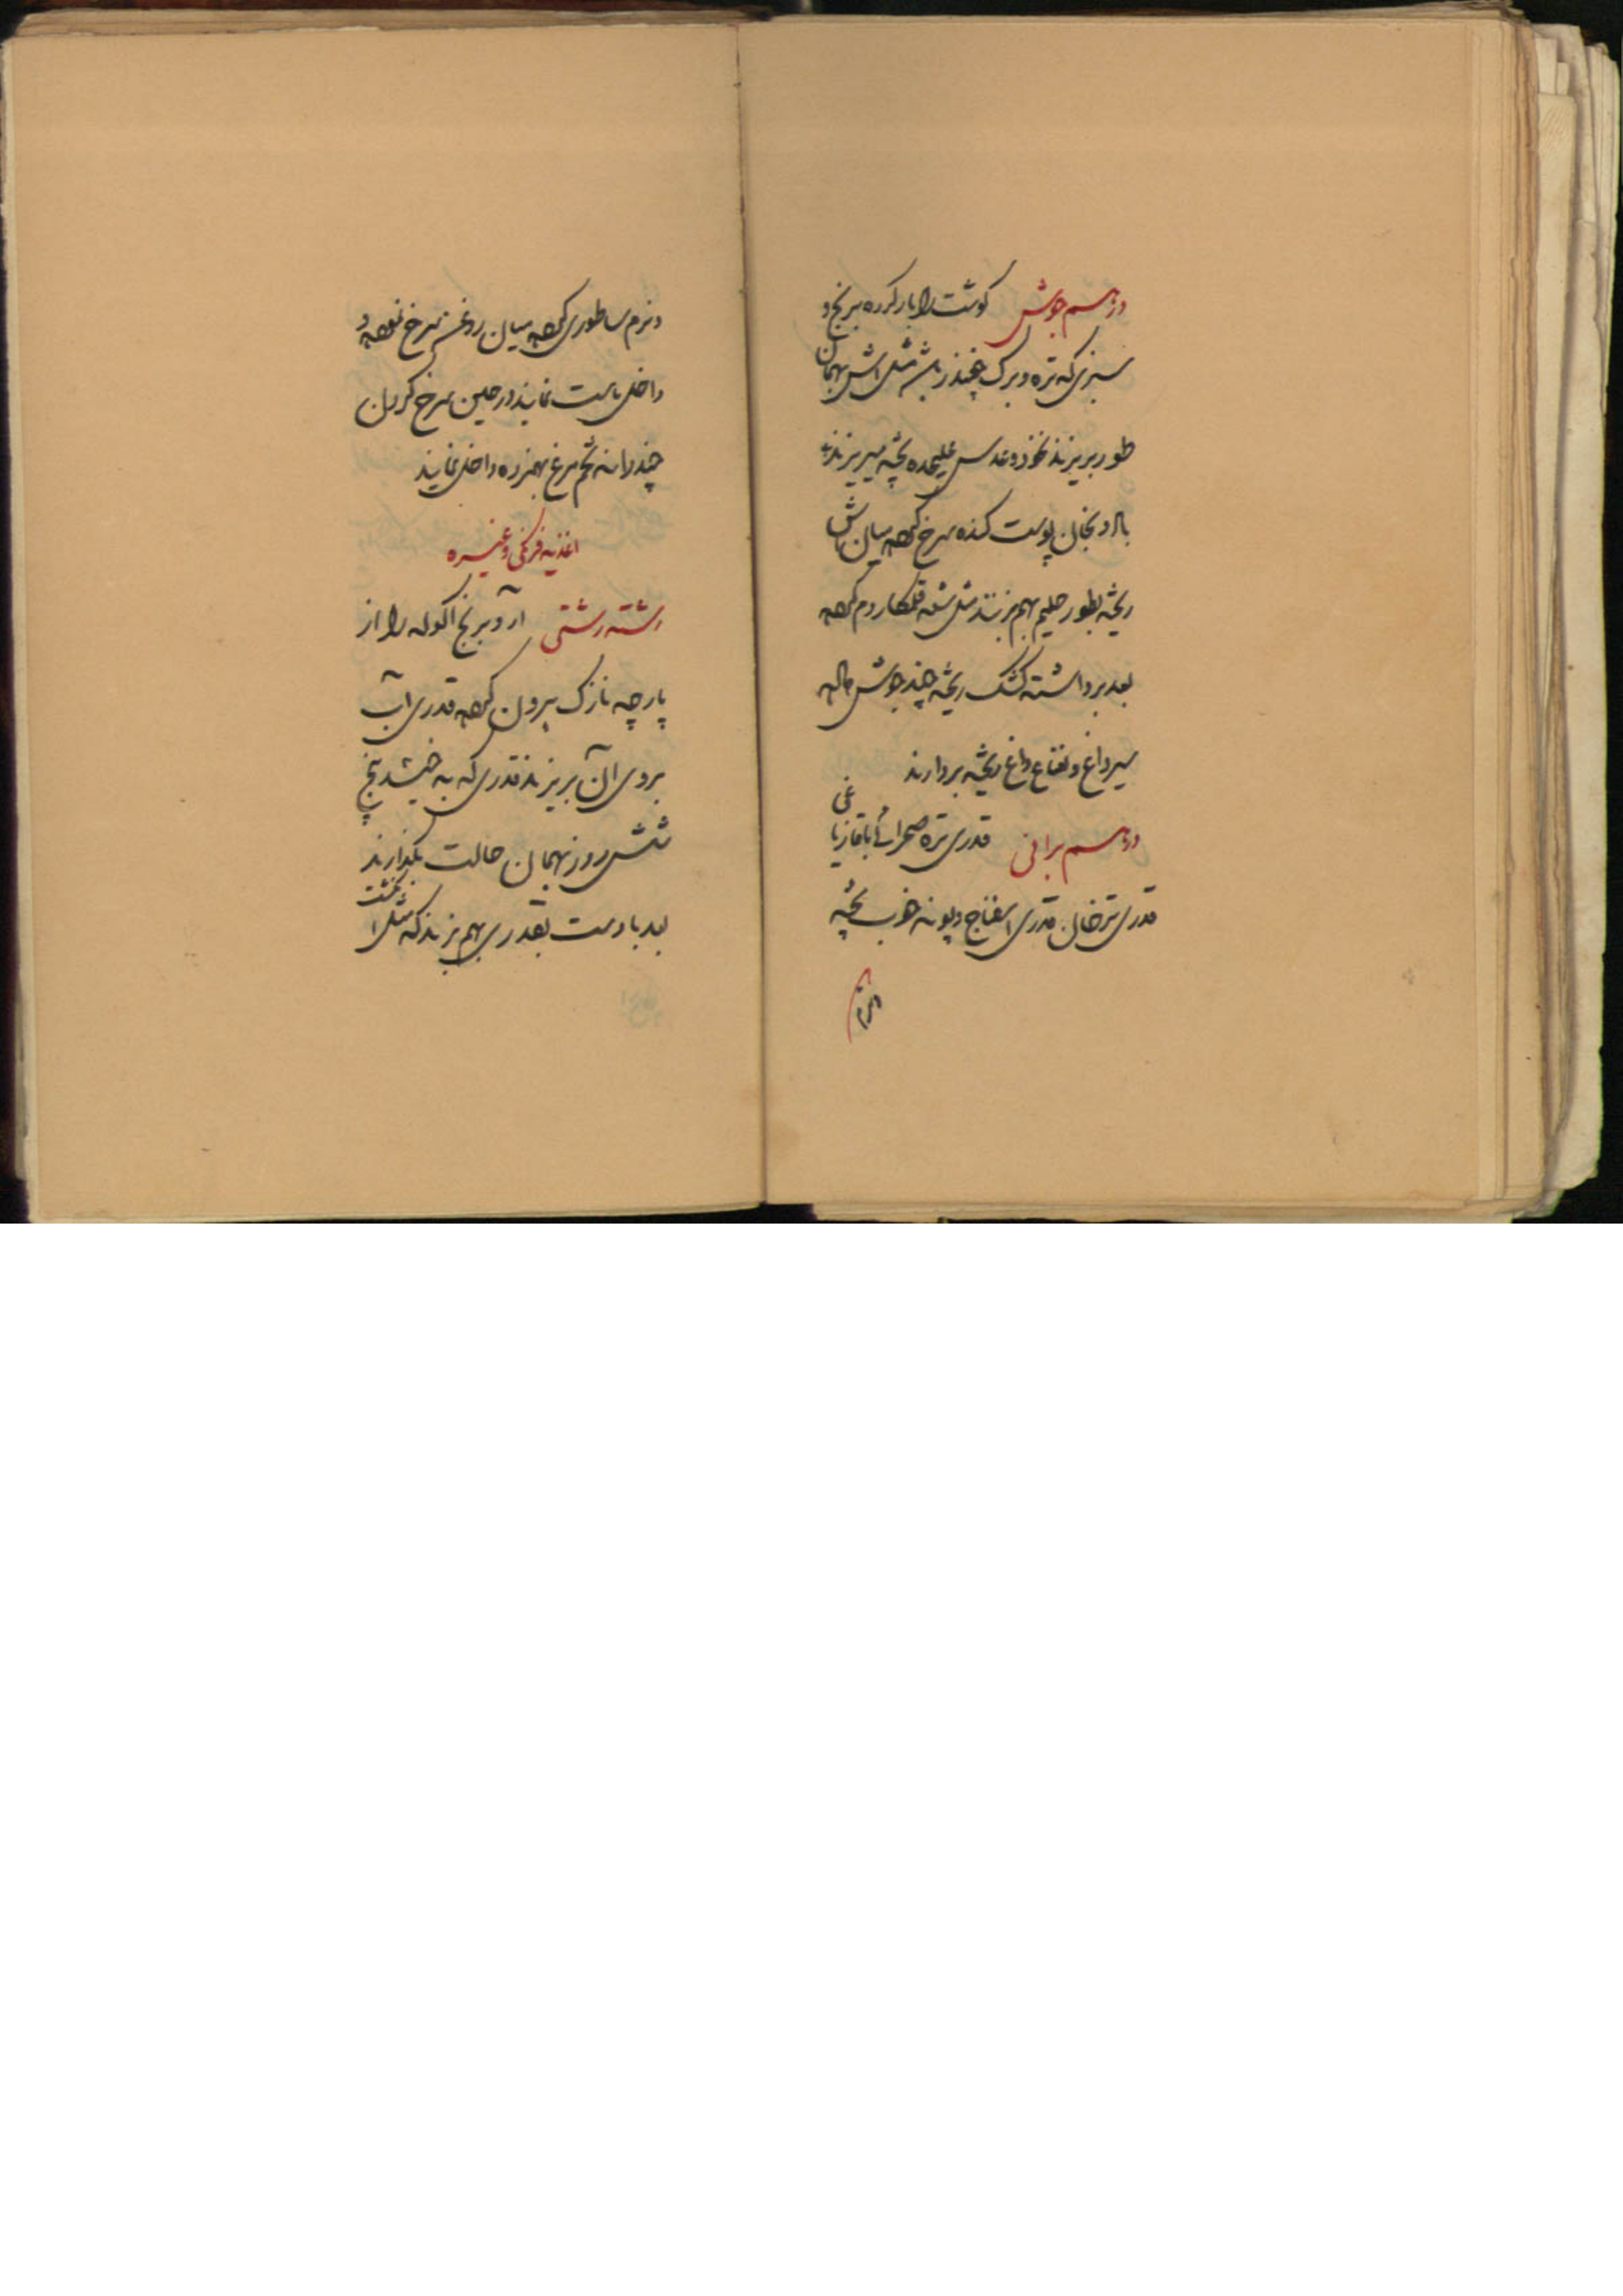 در رسم جوش گوشت را بار کرده برنج و
سبزی که تره و برگ چغندر باشد مثل آش بهمان
طور بریزند نخود و عدس علیحده پخته میریزند
بادنجان پوست کنده سرخ کرده میان آش
ریخته بطور حلیم بهم بزنند مثل شله قلمکار دم کرده
بعد برداشته کشک ریخته چند جوش داده
سیر داغ و نعناع داغ ریخته بردارند
در رسم برانی قدری تره صحرائی با قازیاغی
قدری ترخان قدری اسفناج و پونه خوب پخته
و نرم
و نرم ساطوری کرده میان روغن سرخ نموده و
داخل ماست نمایند در حین سرخ کردن
چند دانه تخم مرغ بهم زده داخل نمایند
اغذیه فرنگی و غیره
رشته رشتی آرد برنج اکوله را از
پارچه نازک بیرون کرده قدری آب
بروی آن بریزند قدری که به خیسد پنج
شش روز بهمان حالت بگذارند
بعد با دست بقدری بهم بزنند که مثل انگشت